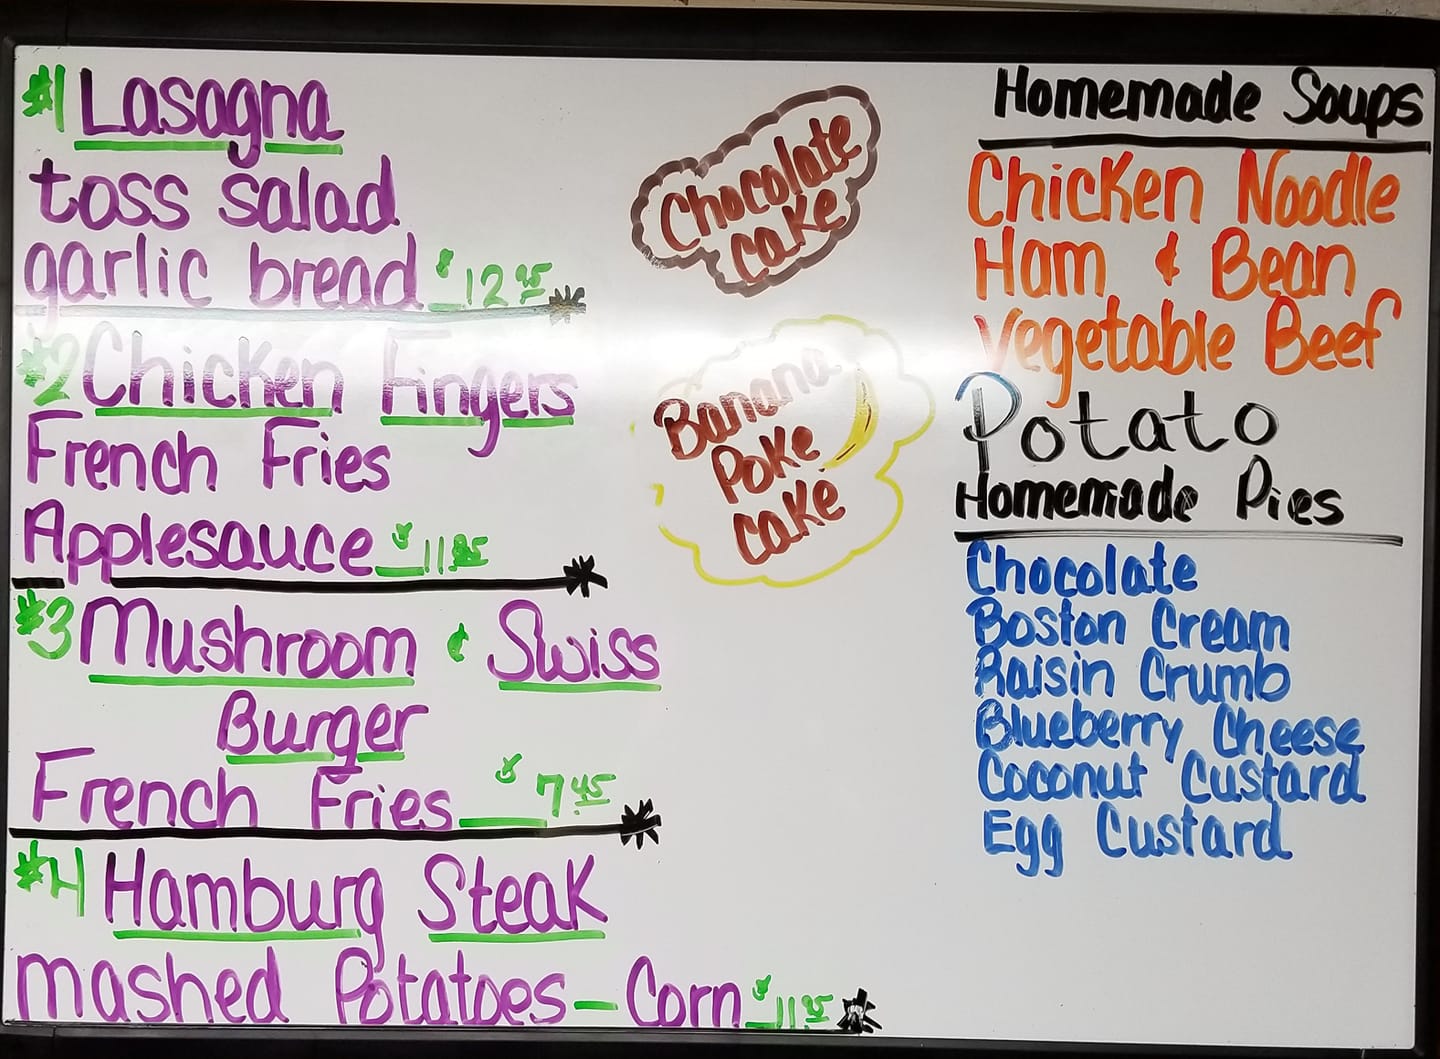 #1 Lasagna
toss salad
garlic bread $12.95
#2 Chicken Fingers
French Fries
Applesauce $11.95
#3 Mushroom & Swiss
Burger
French Fries $7.45
#4 Hamburg Steak
mashed Potatoes - Corn $11.95
Chocolate
cake
Banana
Poke
cake
Homemade Soups
Chicken Noodle
Ham & Bean
Vegetable Beef
Potato
Homemade Pies
Chocolate
Boston Cream
Raisin Crumb
Blueberry Cheese
Coconut Custard
Egg Custard